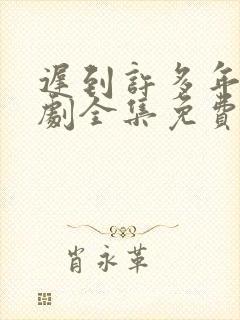 遲到許多年
劇全集免費
肖永革